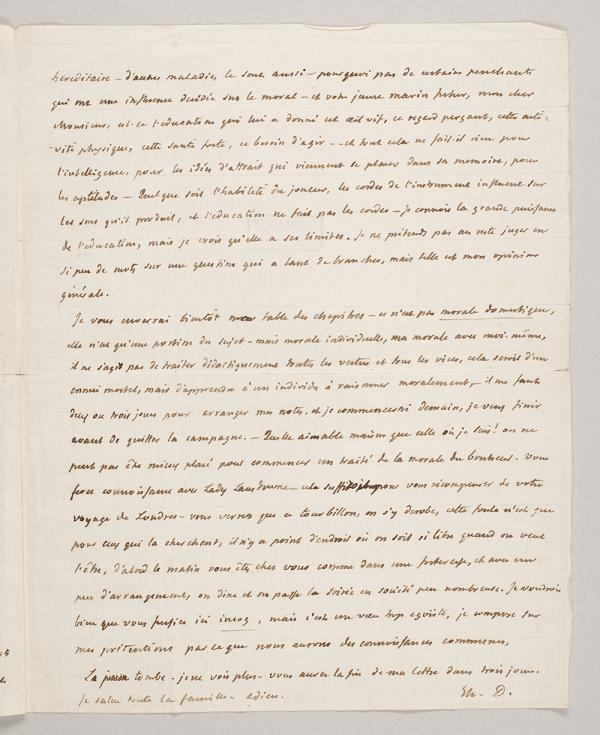 héréditaire – d'autres maladies le sont aussi – pourquoi pas de certains penchants
qui ont une influence décidée sur le moral – et votre jeune marin futur, mon cher
Monsieur, est-ce l'éducation qui lui a donné cet œil vif, ce regard perçant, cette acti-
-vité physique, cette santé forte, ce besoin d'agir – et tout cela ne fait-il rien pour
l'intelligence, pour les idées d'attrait qui viennent se placer dans sa memoire, pour
les aptitudes – Quelque soit l'habileté du joueur, les cordes de l'instrument influent sur
les sons qu'il produit, et l'éducation ne fait pas les cordes – Je connois la grande puissance
de l'éducation, mais je crois qu'elle a ses limites. Je ne prétends pas au reste juger en
si peu de mots sur une question qui a tant de branches, mais telle est mon opinion
générale.
Je vous enverrai bientôt table des chapitres – ce n'est pas morale domestique,
elle n'est qu'une portion du sujet – mais morale individuelle, ma morale avec moi-même,
il ne s'agit pas de traiter didactiquement toutes les vertus et tous les vices, cela seroit d'un
ennui mortel, mais d'apprendre à un individu à raisonner moralement, – il me faut
deux ou trois jours pour arranger mes notes. et je commencerai demain, je veux finir
avant de quitter la campagne. – Quelle aimable maison que celle où je suis! on ne
peut pas être mieux placé pour commencer un traité de la morale du bonheur. Vous
ferez connoissance avec Lady Lansdowne cela suffit pour vous récompenser de votre
voyage de Londres – vous verrez que ce tourbillon, on s'y derobe, cette foule n'est que
pour ceux qui la cherchent, il n'y a point d'endroit où on soit si libre quand on veut
l'être, d'abord le matin vous êtes chez vous comme dans une forteresse, et avec un
peu d'arrangement, on dine et on passe la soirée en société peu nombreuse. Je voudrois
bien que vous fussiez ici incog, mais c'est un vœu trop egoïste, je compose sur
mes prétentions parce que nous aurons des connoissances communes,
La tombe – je ne vois plus – vous aurez la fin de ma lettre dans trois jours.
Je salue toute la famille – adieu. Et. D.